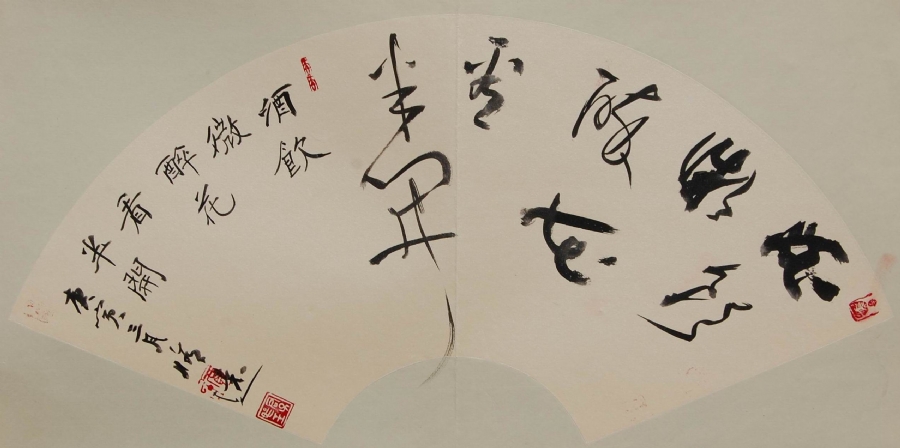 酒饮
微醉
花看
半開
酒飲
微
醉花
看
半開
庚寅三月